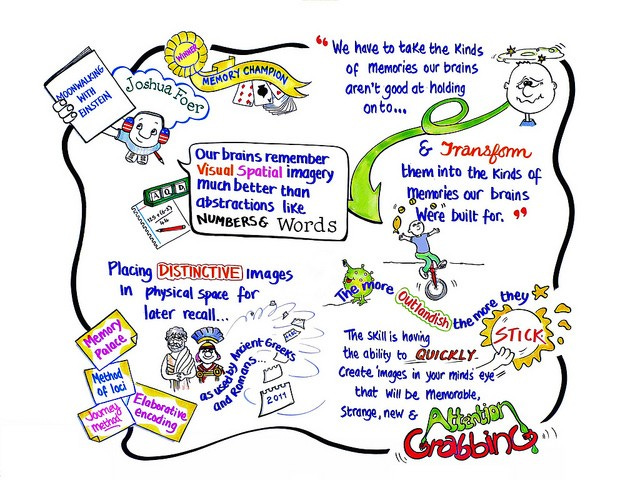 MOONWALKING
WITH
EINSTEIN
Joshua Foer
WINNER
MEMORY CHAMPION
“We have to take the kinds
of memories our brains
aren't good at holding
onto...
& Transform
them into the kinds of
memories our brains
were built for. ”
Our brains remember
Visual Spatial imagery
much better than
abstractions like
NUMBERS & Words
Placing DISTINCTIVE images
in physical space for
later recall...
as used by Ancient Greeks
and Romans...
2011
Memory
Palace
Method
of loci
Journey
method
Elaborative
encoding
The more Outlandish the more they
STICK
The skill is having
the ability to QUICKLY
Create images in your minds eye
that will be memorable,
Strange, new &
Attention
Grabbing